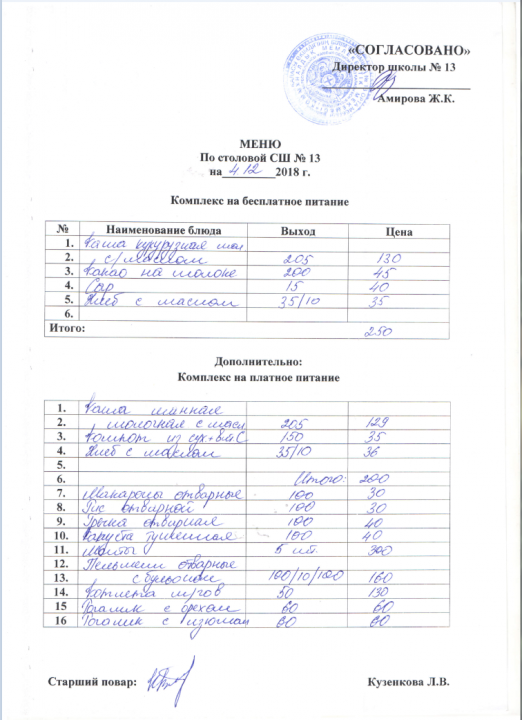 «СОГЛАСОВАНО»
Директор школы № 13
Амирова Ж.К.
МЕНЮ
По столовой СШ № 13
на 4 12 2018 г.
Комплекс на бесплатное питание
№ Наименование блюда Выход Цена
1. Каша кукурузная мол
2. с/маслом 205 130
3. Какао на молоке 200 45
4. Сыр 15 40
5. Хлеб с маслом 35/10 35
6.
Итого: 250
Дополнительно:
Комплекс на платное питание
1. Каша
2. молочная с масл 205 129
3. Компот из сух+вит С 150 35
4. Хлеб с маслом 35/10 36
5.
6. Итого: 200
7. Макароны отварные 100 30
8. Рис отварной 100 30
9. Гречка отварная 100 40
10. Капуста тушенная 100 40
11. Манты 5 шт. 300
12. Пельмени отварные
13. с бульоном 100/10/100 160
14. Котлета м/гов 50 130
15 Рогалик с орехом 60 60
16 Рогалик с изюмом 60 60
Старший повар: Кузенкова Л.В.